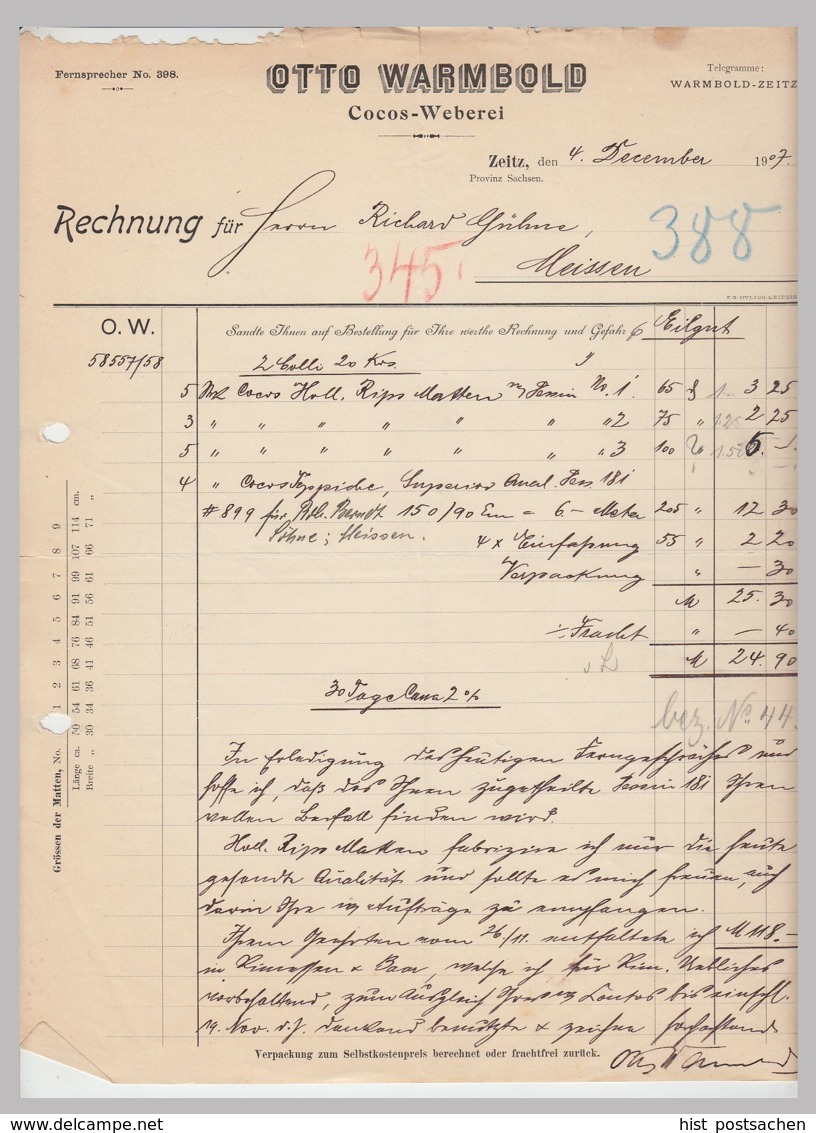 Fernsprecher No. 398.
OTTO WARMBOLD
Cocos-Weberei
Telegramme:
WARMBOLD-ZEITZ
Zeitz, den 4. December 1907.
Provinz Sachsen.
Rechnung für Herrn Richard Gühne,
Meissen
345
388
F. G. MYLIUS-LEIPZIG
O. W.
Sandte Ihnen auf Bestellung für Ihre werthe Rechnung und Gefahr Eilgut
58557/58
2 Colli 20 Kos.
5 Stck Cocos Holl. Rips Matten No. 1 65 3 25
3 " " " " " " " 2 75 " 1.25 2 25
5 " " " " " " " 3 100 1.50 5. —
4 " Cocos Teppiche, Superior Qual. Dess. 181
# 899 für Rob. Berndt 150/90 Cm = 6.— Meter 205 " 12 30
Söhne, Meissen.
4 x Einfassung 55 " 2 20
Verpackung " — 30
M 25. 30
÷ Fracht " — 40
M 24. 90
30 Tage Cassa 2 %
bez. No. 44.
In Erledigung des heutigen Ferngespräches und
hoffe ich, daß das Ihnen zugetheilte Dessin 181 Ihren
vollen Beifall finden wird.
Holl. Rips Matten fabrizire ich nur die heute
gesandte Qualität und sollte es mich freuen, auch
darin Ihre Aufträge zu empfangen.
Ihrem Geehrten vom 26/11. entfaltete ich M 118.—
in Rimessen & Baar, welche ich für Rim. Uebliches
vorbehaltend, zum Ausgleich Ihres Contos bis einschl.
19. Nov. d. J. dankend benützte & zeichne hochachtend
Verpackung zum Selbstkostenpreis berechnet oder frachtfrei zurück.
Otto Warmbold
Grössen der Matten, No. 1 2 3 4 5 6 7 8 9
Länge ca. 50 54 61 68 76 84 91 99 107 114 cm.
Breite " 30 34 36 41 46 51 56 61 66 71 "
hist postsachen